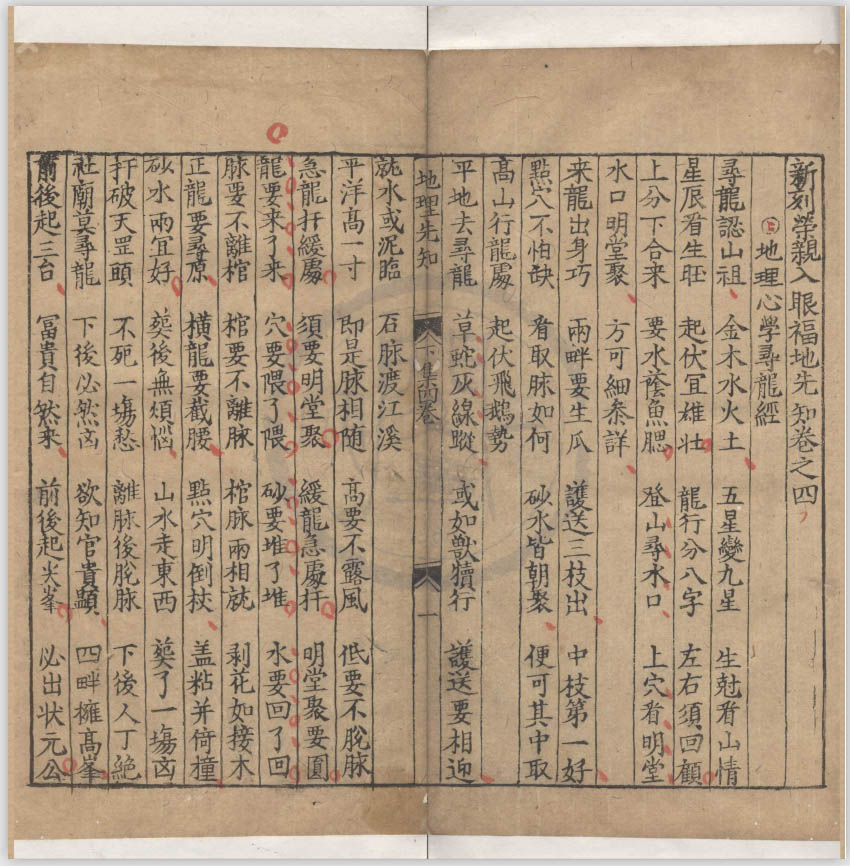 新刻榮親入眼福地先知卷之四
地理心學尋龍經
尋龍認山祖 金木水火土 五星變九星 生尅看山情
星辰看生旺 起伏宜雄壮 龍行分八字 左右須回顧
上分下合来 要水蔭魚腮 登山尋水口 上穴看明堂
水口明堂聚 方可細叅詳
来龍出身巧 兩畔要生瓜 護送三枝出 中枝第一好
點穴不怕訣 看取脉如何 砂水皆朝聚 便可其中取
高山行龍處 起伏飛鵝勢
平地去尋龍 草蛇灰線蹤 或如獸犢行 護送要相迎
地理先知 下集四卷 一
就水或泥臨 石脉渡江溪
平洋高一寸 即是脉相随 高要不露風 低要不脫脉
急龍扦緩處 須要明堂聚 緩龍急處扦 明堂聚要圓
龍要来了来 穴要隈了隈 砂要堆了堆 水要回了回
脉要不離棺 棺要不離脉 棺脉兩相就 剥花如接木
正龍要尋原 橫龍要截腰 點穴明倒杖 盖粘并倚撞
砂水兩宜好 葬後無煩惱 山水走東西 葬了一塲凶
扦破天罡頭 不死一塲愁 離脉後脫脉 下後人丁絶
社廟莫尋龍 下後必然凶 欲知官貴顯 四畔擁高峯
前後起三台 冨貴自然来 前後起尖峯 必出状元公